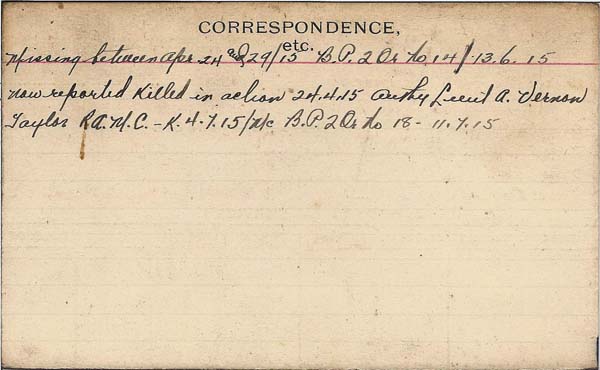 CORRESPONDENCE,
etc.
Missing between Apr. 24 & 29/15 B.P. 2 Or No 14/ 13.6.15
now reported Killed in action 24.4.15 Authy Lieut A. Vernon
Taylor R.A.M.C. - K. 4.7.15/ B.P. 2 Or No 18 - 11.7.15